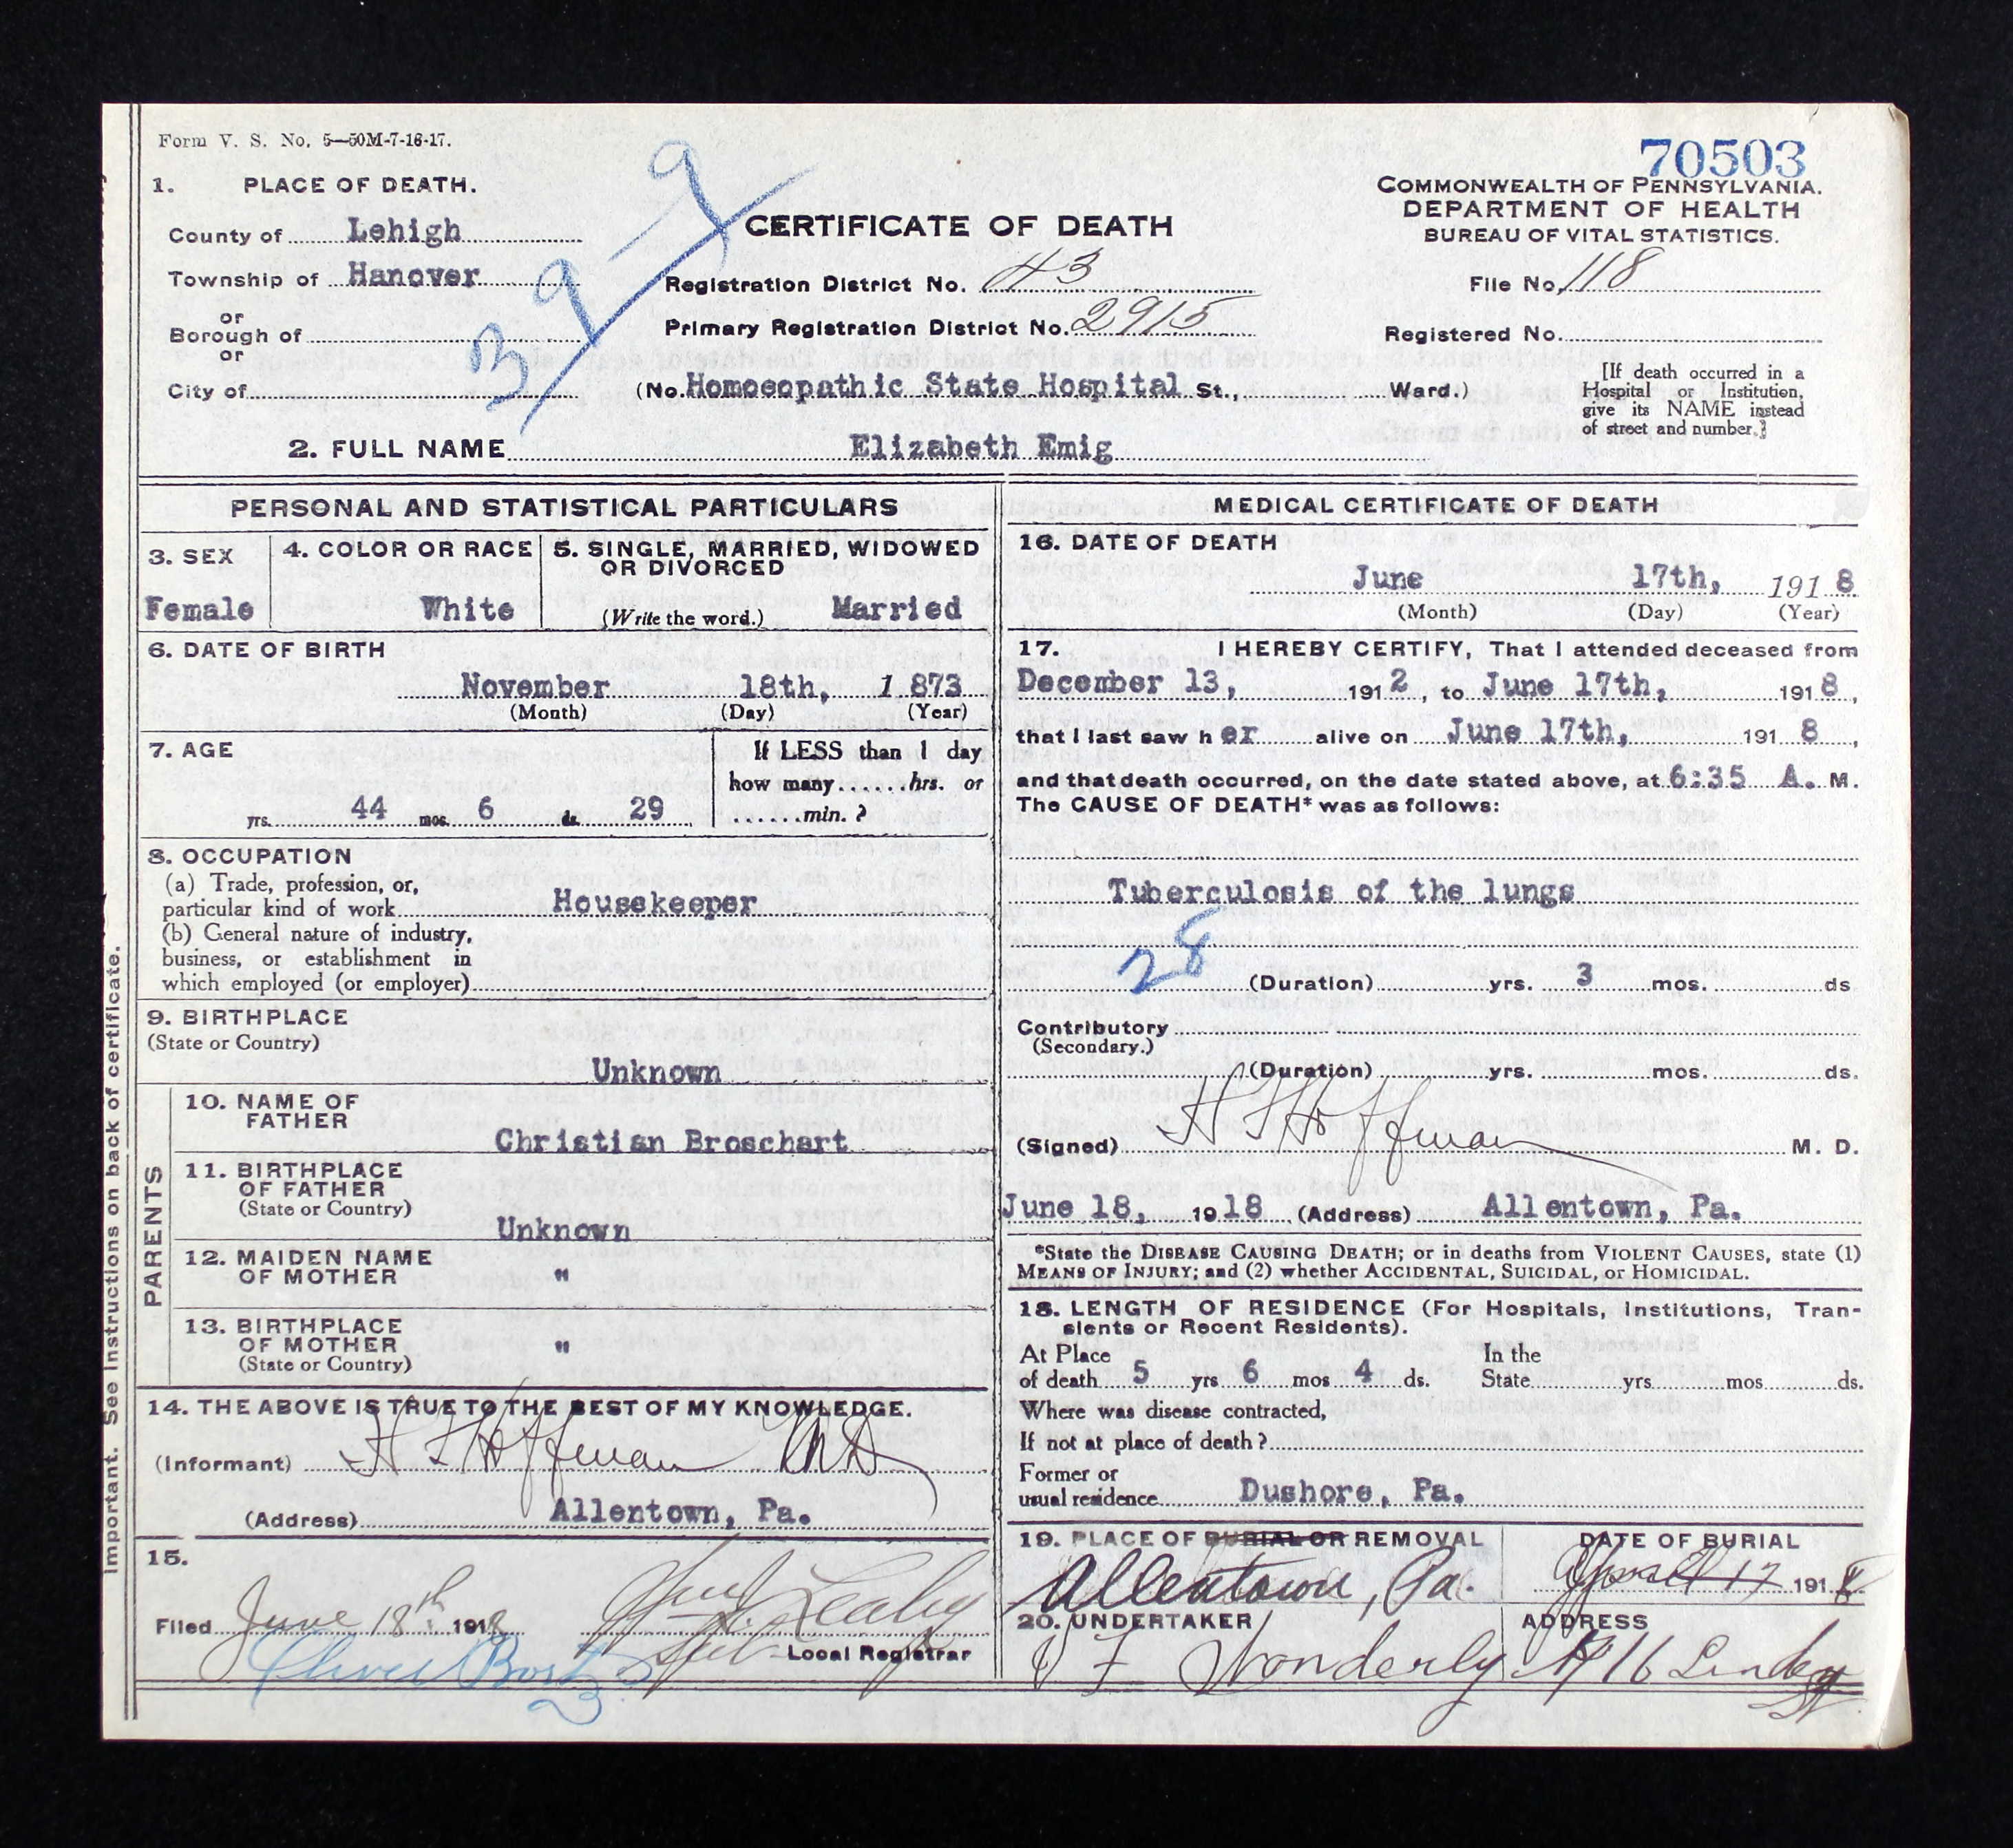 Form V. S. No. 5—50M-7-16-17.
70503
1. PLACE OF DEATH.
County of Lehigh
Township of Hanover
or
Borough of
or
City of
39-9
CERTIFICATE OF DEATH
Registration District No. 43
Primary Registration District No. 2915
(No. Homoeopathic State Hospital St., Ward.)
COMMONWEALTH OF PENNSYLVANIA.
DEPARTMENT OF HEALTH
BUREAU OF VITAL STATISTICS.
File No. 118
Registered No.
[If death occurred in a
Hospital or Institution,
give its NAME instead
of street and number.]
2. FULL NAME Elizabeth Emig
PERSONAL AND STATISTICAL PARTICULARS
3. SEX
Female
4. COLOR OR RACE
White
5. SINGLE, MARRIED, WIDOWED
OR DIVORCED
(Write the word.) Married
6. DATE OF BIRTH
November 18th, 1 873
(Month) (Day) (Year)
7. AGE
yrs. 44 mos. 6 ds. 29
If LESS than 1 day
how many......hrs. or
......min.?
8. OCCUPATION
(a) Trade, profession, or,
particular kind of work Housekeeper
(b) General nature of industry,
business, or establishment in
which employed (or employer)
9. BIRTHPLACE
(State or Country)
Unknown
PARENTS
10. NAME OF
FATHER
Christian Broschart
11. BIRTHPLACE
OF FATHER
(State or Country)
Unknown
12. MAIDEN NAME
OF MOTHER "
13. BIRTHPLACE
OF MOTHER "
(State or Country)
14. THE ABOVE IS TRUE TO THE BEST OF MY KNOWLEDGE.
(Informant) H F Hoffman MD
(Address) Allentown, Pa.
15.
Filed June 18th 1918
Leahy
Sub- Local Registrar
Important. See instructions on back of certificate.
MEDICAL CERTIFICATE OF DEATH
16. DATE OF DEATH
June 17th, 191 8
(Month) (Day) (Year)
17. I HEREBY CERTIFY, That I attended deceased from
December 13, 191 2, to June 17th, 191 8,
that I last saw h er alive on June 17th, 191 8,
and that death occurred, on the date stated above, at 6:35 A. M.
The CAUSE OF DEATH* was as follows:
Tuberculosis of the lungs
28
(Duration) yrs. 3 mos. ds
Contributory
(Secondary.)
(Duration) yrs. mos. ds.
(Signed) H F Hoffman M. D.
June 18, 1918 (Address) Allentown, Pa.
*State the DISEASE CAUSING DEATH; or in deaths from VIOLENT CAUSES, state (1)
MEANS OF INJURY; and (2) whether ACCIDENTAL, SUICIDAL, or HOMICIDAL.
18. LENGTH OF RESIDENCE (For Hospitals, Institutions, Tran-
sients or Recent Residents).
At Place In the
of death 5 yrs 6 mos 4 ds. State yrs mos ds.
Where was disease contracted,
If not at place of death?
Former or
usual residence Dushore, Pa.
19. PLACE OF BURIAL OR REMOVAL
Allentown, Pa.
DATE OF BURIAL
17 191
20. UNDERTAKER
ADDRESS
F Wonderly